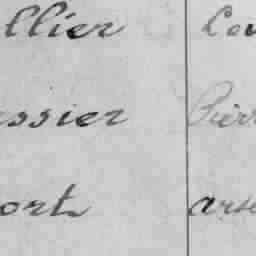 llier Lou
ssier Pierr
ort arse